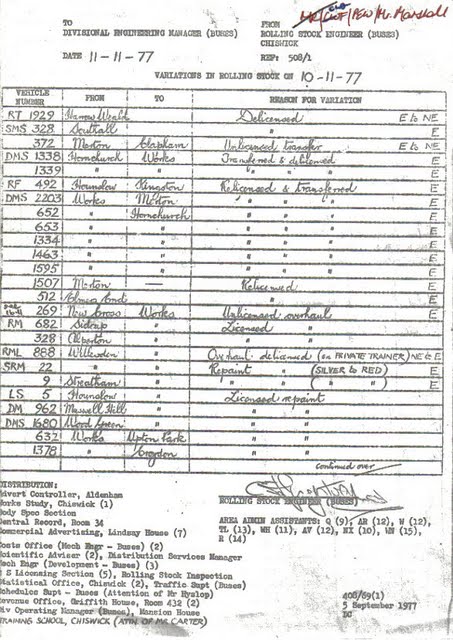 TO FROM
DIVISIONAL ENGINEERING MANAGER (BUSES) ROLLING STOCK ENGINEER (BUSES)
CHISWICK
DATE 11-11-77 REF: 508/1
VARIATIONS IN ROLLING STOCK ON 10-11-77
VEHICLE NUMBER FROM TO REASON FOR VARIATION
RT 1929 Harrow Weald Delicensed E to NE
SMS 328 Southall " E
372 Merton Clapham Unlicensed transfer E to NE
DMS 1338 Hornchurch Works Transferred & delicensed E
1339 " " " " " E
RF 492 Hounslow Kingston Relicensed & transferred E
DMS 2203 Works Merton " " " E
652 " Hornchurch " " " E
653 " " " " " E
1334 " " " " " E
1463 " " " " " E
1595 " " " " " E
1507 Merton — Relicensed E
512 Elmers End " E
269 New Cross Works Unlicensed overhaul E
RM 682 Sidcup Licensed "
328 Alperton " "
RML 888 Willesden Overhaul delicensed (on PRIVATE TRAINER) NE to E
SRM 22 " Repaint " (SILVER to RED) E
9 Streatham " " ( " " ) E
LS 5 Hounslow Licensed repaint
DM 962 Muswell Hill " "
DMS 1680 Wood Green " "
632 Works Upton Park " "
1378 " Croydon " "
continued over
DISTRIBUTION:
Advert Controller, Aldenham
Works Study, Chiswick (1)
Body Spec Section
Central Record, Room 34
Commercial Advertising, Lindsay House (7)
Costs Office (Mech Engr - Buses) (2)
Scientific Adviser (2), Distribution Services Manager
Mech Engr (Development - Buses) (3)
S Licensing Section (5), Rolling Stock Inspection
Statistical Office, Chiswick (2), Traffic Supt (Buses)
Schedules Supt - Buses (Attention of Mr Hyslop)
Revenue Office, Griffith House, Room 432 (2)
Div Operating Manager (Buses), Mansion House
TRAINING SCHOOL, CHISWICK (ATTN. OF MR CARTER)
ROLLING STOCK ENGINEER (BUSES)
AREA ADMIN ASSISTANTS: Q (9), AR (12), W (12),
TL (13), WH (11), AV (12), NX (10), WN (15),
R (14)
408/69(1)
5 September 1977
DC